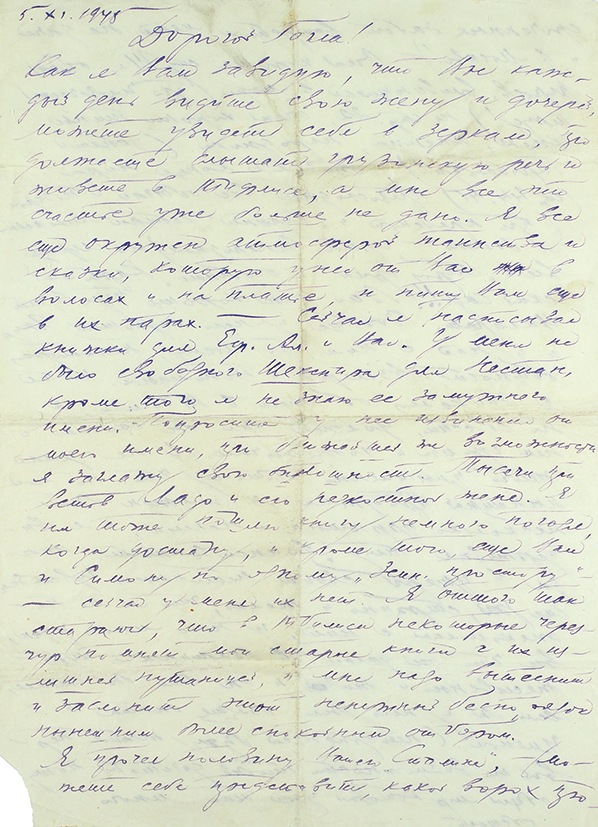 5. XI. 1945
Дорогой Гогла!
Как я Вам завидую, что Вы каж-
дый день видите свою жену и дочерей,
можете увидеть себя в зеркале, про
должаете слышать грузинскую речь и
живете в Тифлисе, а мне все это
счастье уже больше не дано. Я все
еще окружен атмосферой таинства и
сказки, которую унес от Вас в
волосах и на платье, и пишу Вам еще
в их парах. — Сейчас я надписывал
книжки для Евр. Ал. и Вас. У меня не
было свободного Шекспира для Нестан,
кроме того я не знаю ее замужнего
имени. Попросите у нее извинения от
моего имени, при ближайшей же возможности
я заглажу свою оплошность. Тысячи при
ветов Ладо и его жене. Я
им тоже пошлю книгу немного погодя,
когда достану, и кроме того, еще Вам
и Симону по одному „Земн. простору“
— сейчас у меня их нет. Я оттого так
стараюсь, что в Тбилиси некоторые через-
чур помнят мои старые книги с их из-
лишней путаницей, и мне надо вытеснить
и заслонить этот ненужный беспорядок
нынешним более спокойным отбором.
Я прочел половину Вашего, — мо-
жете себе представить, какой ворох про-